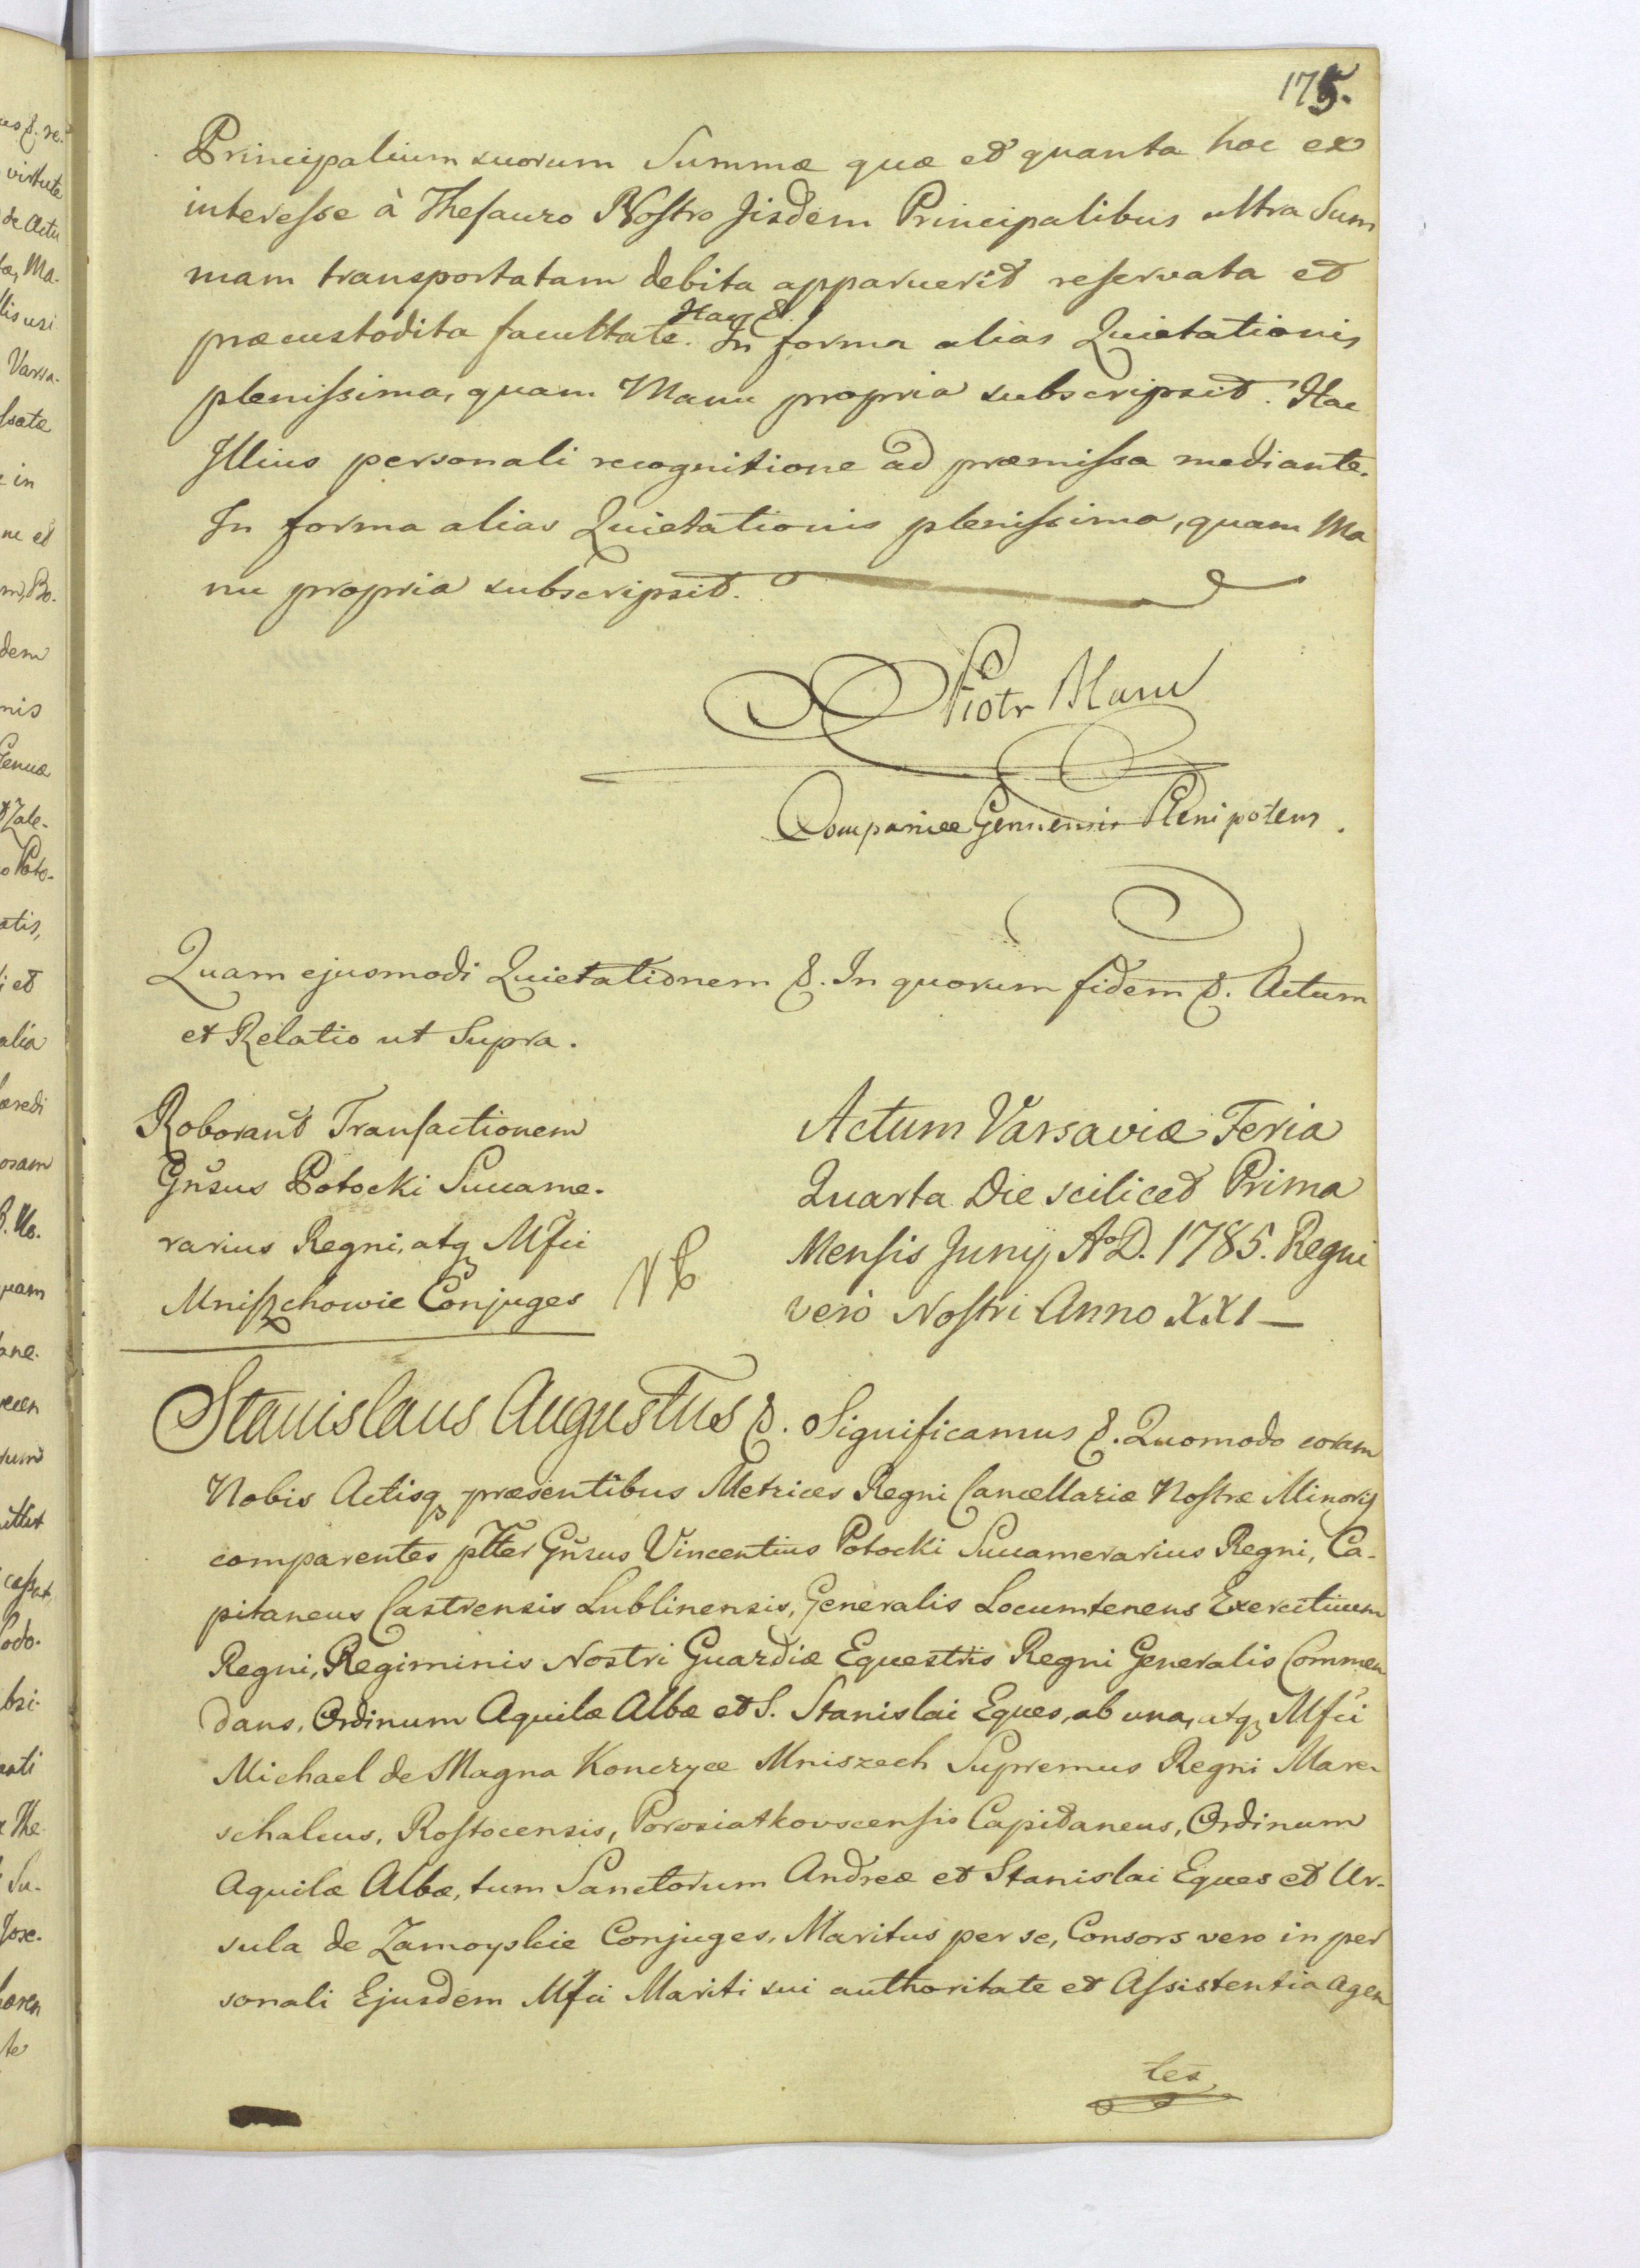 175.
Principalium suorum Summæ quæ et quanta hoc ex
interesse à Thesauro Nostro Jisdem Principalibus ultra Sum
mam transportatam debita apparuerit reservata et
præcustodita facultate. In forma alias Quietationis
plenissima, quam Manu propria subscripsit. Hac
Illius personali recognitione ad præmissa mediante.
In forma alias Quietationis plenissima, quam Ma
nu propria subscripsit.
Piotr Blanc
Companiæ Genuensis Plenipotens.
Quam ejusmodi Quietationem &. In quorum fidem &. Actum
et Relatio ut Supra.
Roborant Transactionem
Gnsus Potocki Succame-
rarius Regni, atq Mfci
Mniszchowie Conjuges
NB
Actum Varsaviæ Feria
Quarta Die scilicet Prima
Mensis Junij Ao D. 1785. Regni
verò Nostri Anno XXI
Stanislaus Augustus &. Significamus &. Quomodo coram
Nobis Actisq præsentibus Metrices Regni Cancellariæ Nostræ Minoris
comparentes plter Gnsus Vincentius Potocki Succamerarius Regni, Ca-
pitaneus Castrensis Lublinensis, Generalis Locumtenens Exercituum
Regni, Regiminis Nostri Guardiæ Equestris Regni Generalis Commen
dans, Ordinum Aquilæ Albæ et S. Stanislai Eques, ab una, atq Mfci
Michael de Magna Konczyce Mniszech Supremus Regni Mare-
schalcus, Rostocensis, Porosiatkovscensis Capitaneus, Ordinum
Aquilæ Albæ, tum Sanctorum Andreæ et Stanislai Eques et Ur-
sula de Zamoyskie Conjuges, Maritus per se, Consors vero in per
sonali Ejusdem Mfci Mariti sui authoritate et Assistentia agen
tes